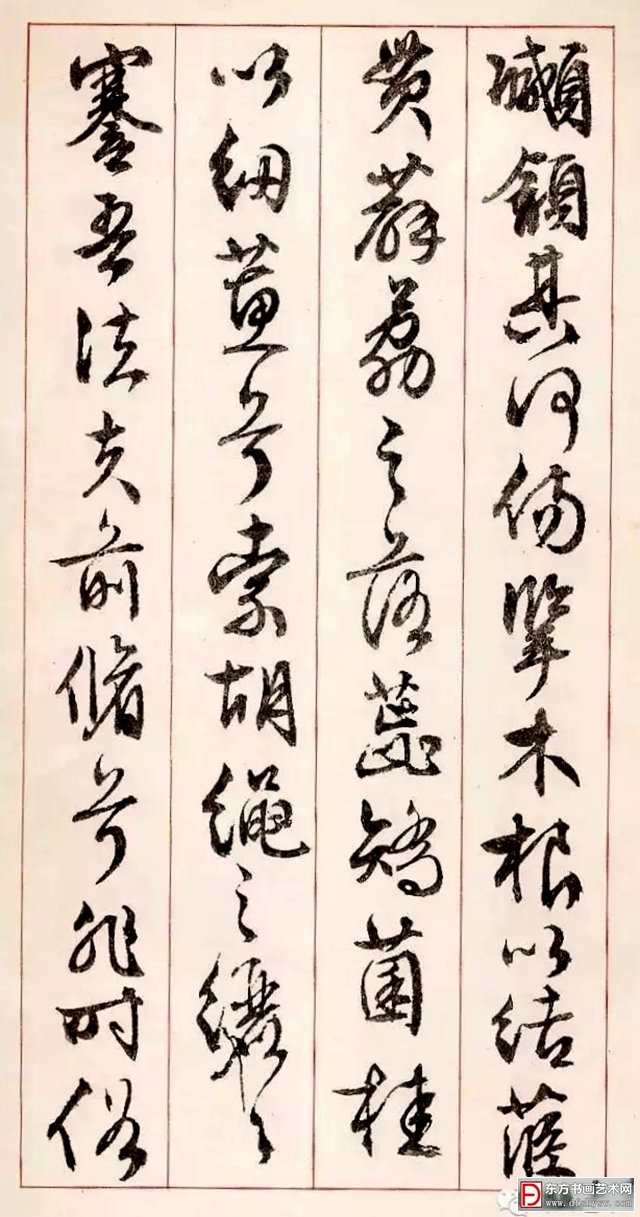 顑頷其何傷擥木根以結茝
貫薜荔之落蕊矯菌桂
以紉蕙兮索胡繩之纚々
謇吾法夫前脩兮非时俗
东方书画艺术网